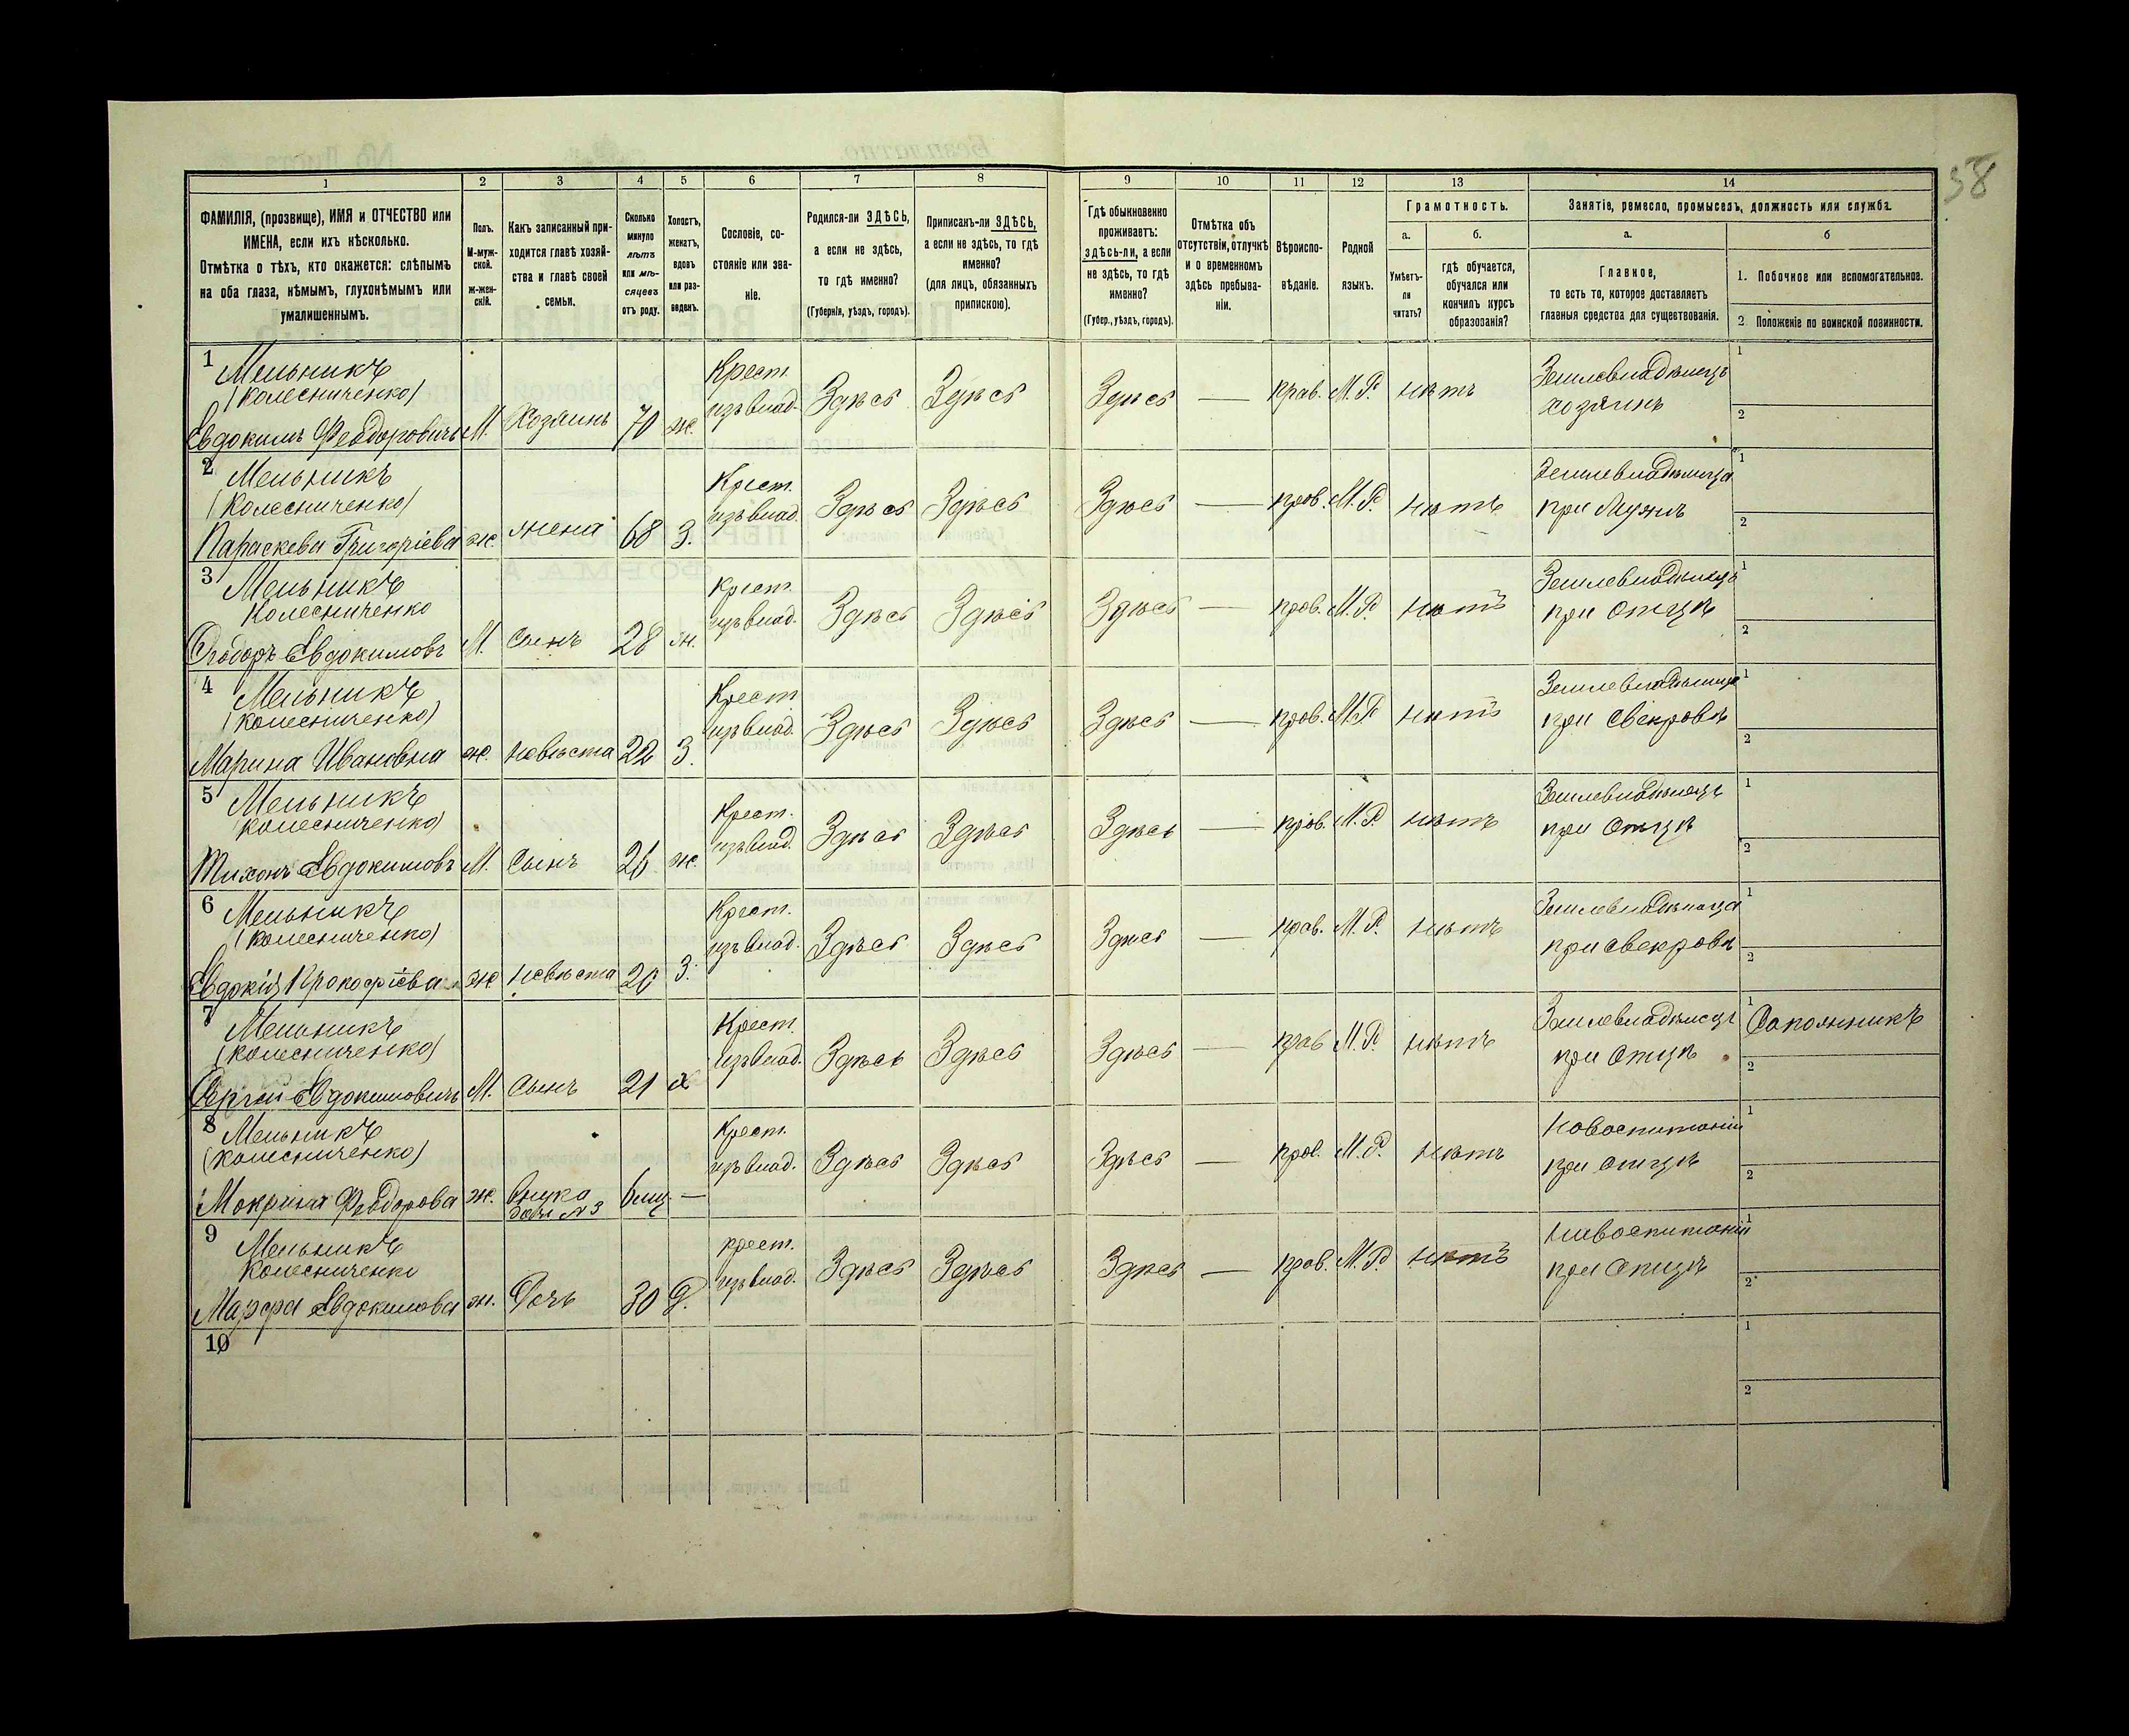 38
1 2 3 4 5 6 7 8 9 10 11 12 13 14
ФАМИЛІЯ, (прозвище), ИМЯ и ОТЧЕСТВО или
ИМЕНА, если ихъ нѣсколько.
Отмѣтка о тѣхъ, кто окажется: слѣпымъ
на оба глаза, нѣмымъ, глухонѣмымъ или
умалишеннымъ.
Полъ.
М-муж-
ской.
ж-жен-
скій.
Какъ записанный при-
ходится главѣ хозяй-
ства и главѣ своей
семьи.
Сколько
минуло
лѣтъ
или мѣ-
сяцевъ
отъ роду.
Холостъ,
женатъ,
вдовъ
или раз-
веденъ.
Сословіе, со-
стояніе или зва-
ніе.
Родился-ли ЗДѢСЬ,
а если не здѣсь,
то гдѣ именно?
(Губернія, уѣздъ, городъ).
Приписанъ-ли ЗДѢСЬ,
а если не здѣсь, то гдѣ
именно?
(для лицъ, обязанныхъ
припискою).
Гдѣ обыкновенно
проживаетъ:
здѣсь-ли, а если
не здѣсь, то гдѣ
именно?
(Губер., уѣздъ, городъ).
Отмѣтка объ
отсутствіи, отлучкѣ
и о временномъ
здѣсь пребыва-
ніи.
Вѣроиспо-
вѣданіе.
Родной
языкъ.
Грамотность.
а.
Умѣетъ-
ли
читать?
б.
гдѣ обучается,
обучался или
кончилъ курсъ
образованія?
Занятіе, ремесло, промыселъ, должность или служба.
а.
Главное,
то есть то, которое доставляетъ
главныя средства для существованія.
б
1. Побочное или вспомогательное.
2 Положеніе по воинской повинности.
1 Мельникъ
(Колесниченко)
Евдокимъ Феодоровичъ М. Хозяинъ 70 ж. Крест. изъ влад. Здѣсь Здѣсь Здѣсь — прав. М.Р. нѣтъ Землевладѣлецъ хозяинъ 1 2
2 Мельникъ
(Колесниченко)
Параскева Григоріева ж. жена 68 З. Крест. изъ влад. Здѣсь Здѣсь Здѣсь — прав. М.Р. нѣтъ Землевладѣлица при Мужѣ 1 2
3 Мельникъ
Колесниченко
Феодоръ Евдокимовъ М. Сынъ 28 ж. Крест. изъ влад. Здѣсь Здѣсь Здѣсь — прав. М.Р. нѣтъ Землевладѣлецъ при Отцѣ 1 2
4 Мельникъ
(Колесниченко)
Марина Ивановна ж. невѣста 22 З. Крест. изъ влад. Здѣсь Здѣсь Здѣсь — прав. М.Р. нѣтъ Землевладѣлица при свекровѣ 1 2
5 Мельникъ
(Колесниченко)
Тихонъ Евдокимовъ М. Сынъ 26 ж. Крест. изъ влад. Здѣсь Здѣсь Здѣсь — прав. М.Р. нѣтъ Землевладѣлецъ при Отцѣ 1 2
6 Мельникъ
(Колесниченко)
Евдокія Прокофіева ж. невѣста 20 З. Крест. изъ влад. Здѣсь Здѣсь Здѣсь — прав. М.Р. нѣтъ Землевладѣлица при свекровѣ 1 2
7 Мельникъ
(Колесниченко)
Сергій Евдокимовичъ М. Сынъ 21 х Крест. изъ влад. Здѣсь Здѣсь Здѣсь — прав М.Р. нѣтъ Землевладѣлецъ при Отцѣ 1 Сапожникъ 2
8 Мельникъ
(Колесниченко)
Мокрина Феодорова ж. Внука дочь №3 6 мц. — Крест. изъ влад. Здѣсь Здѣсь Здѣсь — прав. М.Р. нѣтъ На воспитаніи при Отцѣ 1 2
9 Мельникъ
Колесниченко
Марфа Евдокимова ж. Дочь 30 Д. крест. изъ влад. Здѣсь Здѣсь Здѣсь — прав. М.Р. нѣтъ На воспитаніи при Отцѣ 1 2
10 1 2